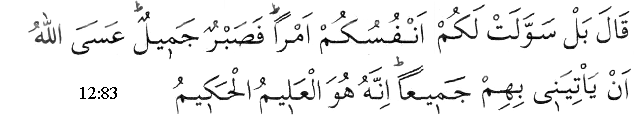 قَالَ بَلْ سَوَّلَتْ لَكُمْ اَنْفُسُكُمْ اَمْراًۜ فَصَبْرٌ جَم۪يلٌۜ عَسَى اللّٰهُ
اَنْ يَأْتِيَن۪ي بِهِمْ جَم۪يعاًۜ اِنَّهُ هُوَ الْعَل۪يمُ الْحَك۪يمُ 12:83